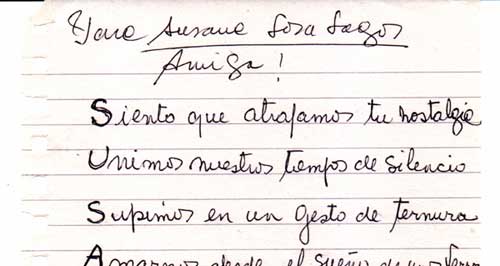 Para Susana Sosa Lagos
Amiga!
Siento que atrapamos tu nostalgia
Unimos nuestros tiempos de silencio
Supimos en un gesto de ternura
Amarnos desde el sueño de